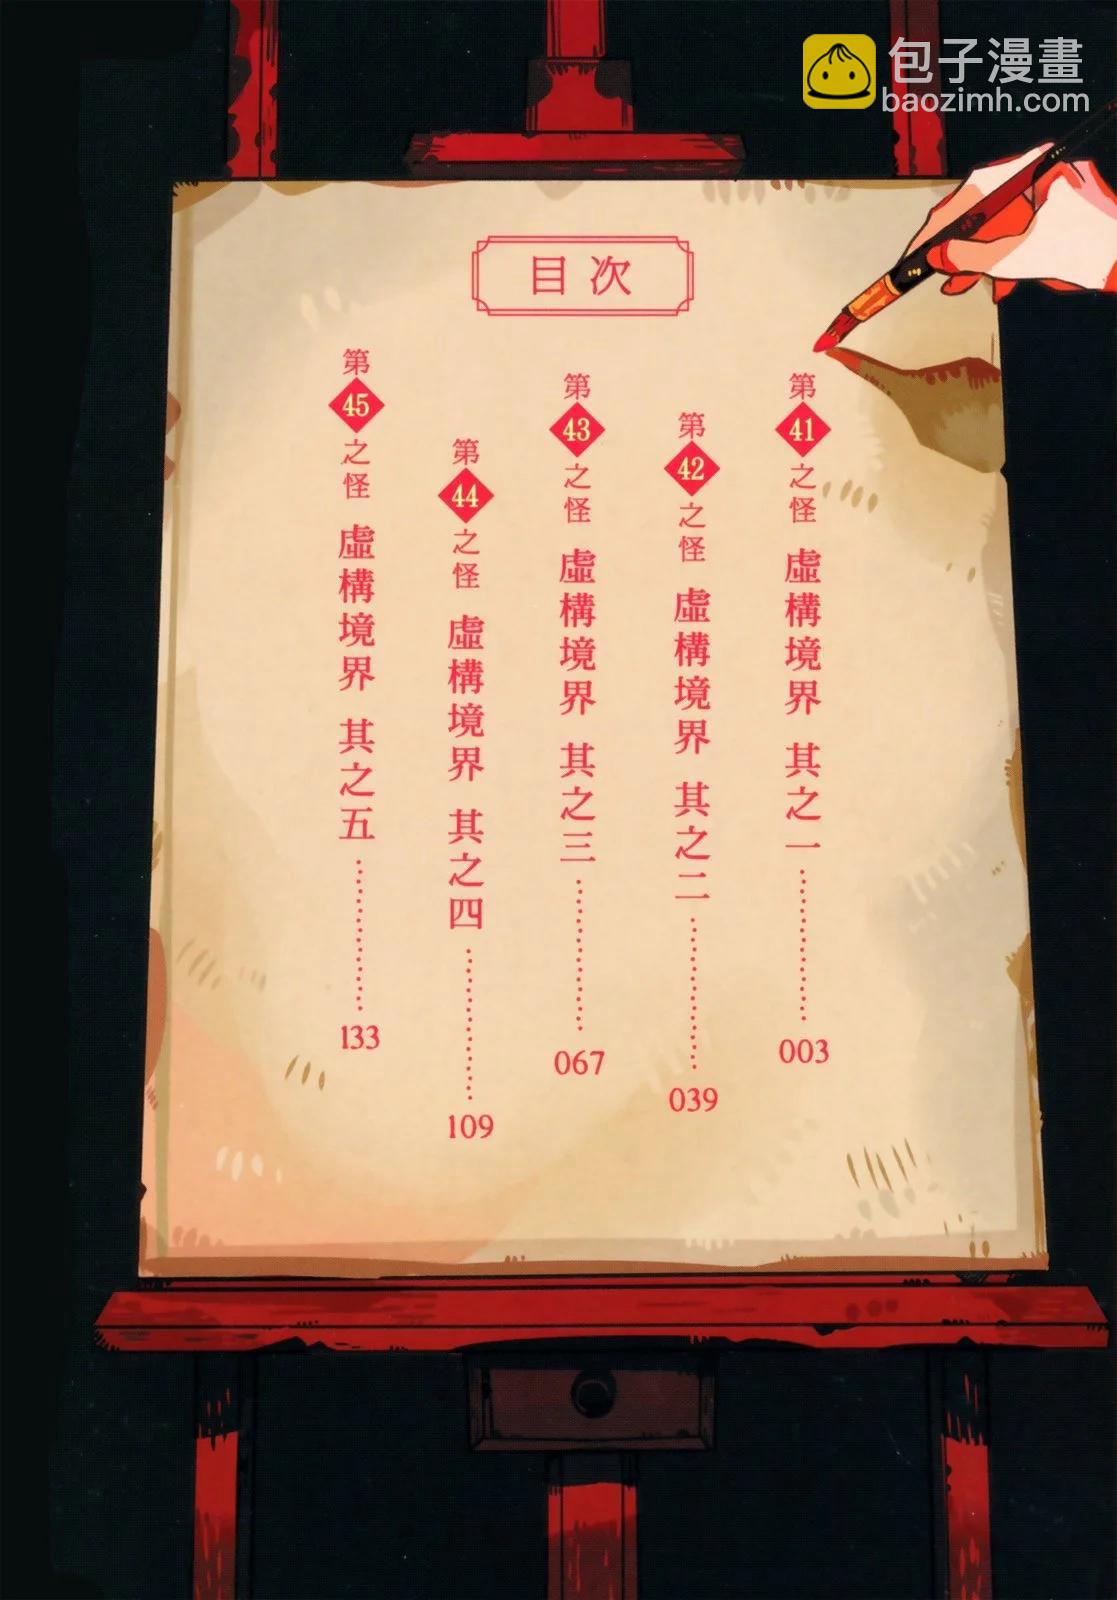 包子漫畫
baozimh.com
目次
第41之怪 虛構境界 其之一…………003
第42之怪 虛構境界 其之二…………039
第43之怪 虛構境界 其之三…………067
第44之怪 虛構境界 其之四…………109
第45之怪 虛構境界 其之五…………133